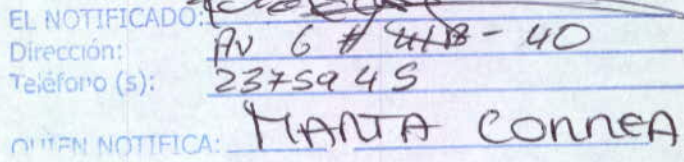 EL NOTIFICADO:
Dirección: AV 6 # 41B - 40
Teléfono (s): 2375945
QUIEN NOTIFICA: MARTA CORREA